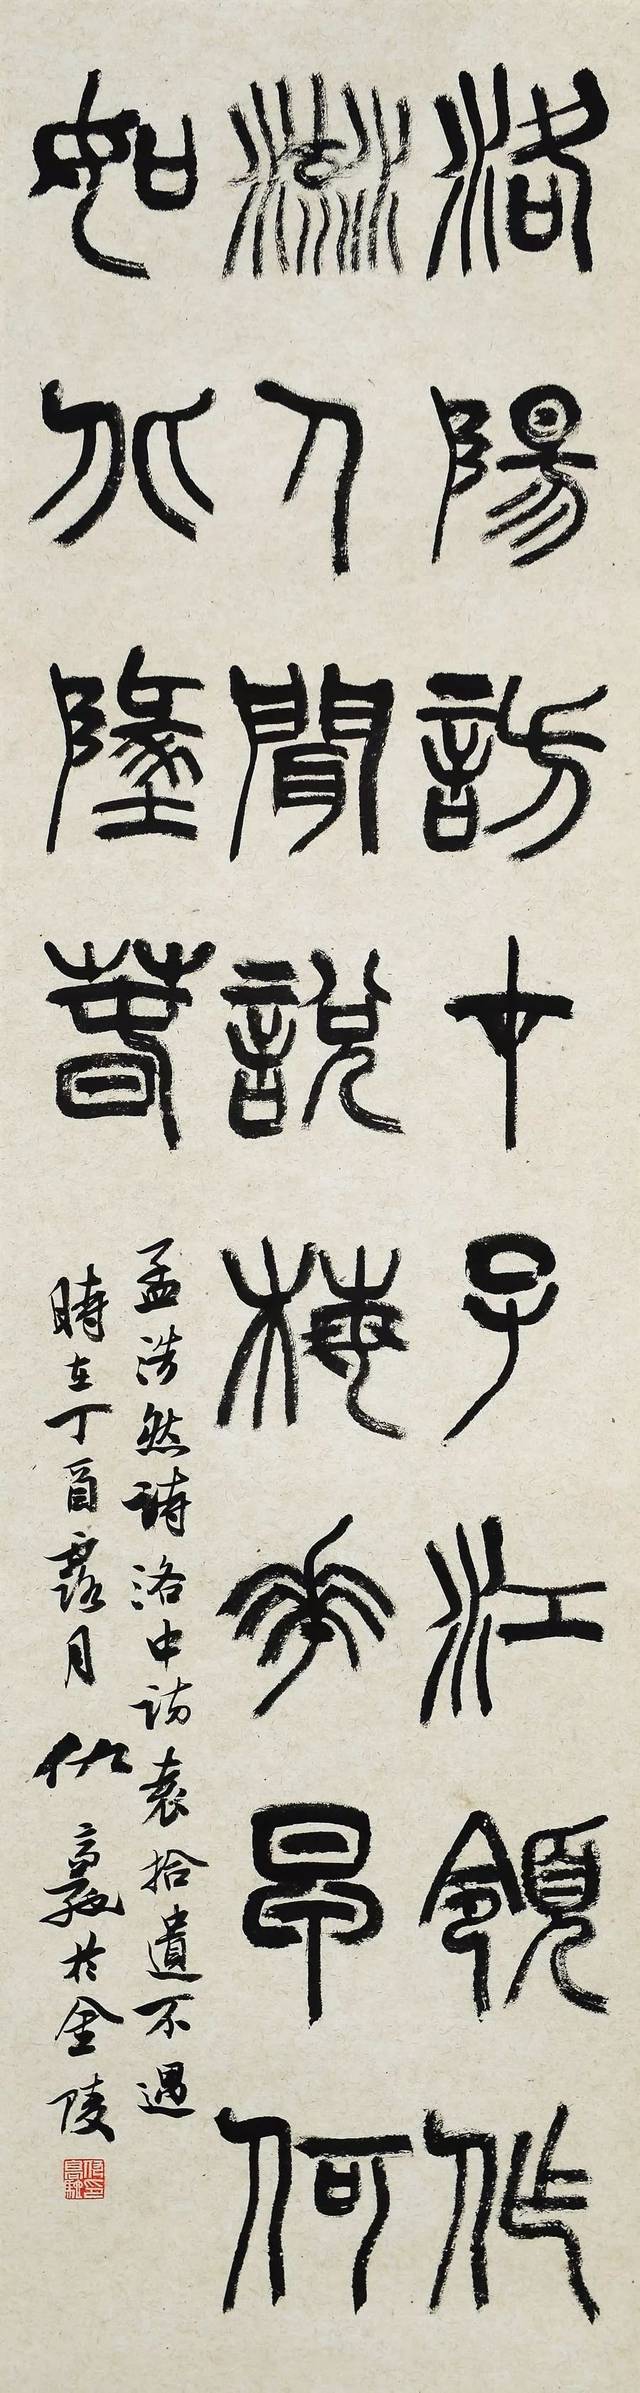 洛陽訪才子江領作
流人聞說梅花早何
如北墬春
孟浩然詩洛中訪袁拾遺不遇
時在丁酉露月仇高馳於金陵